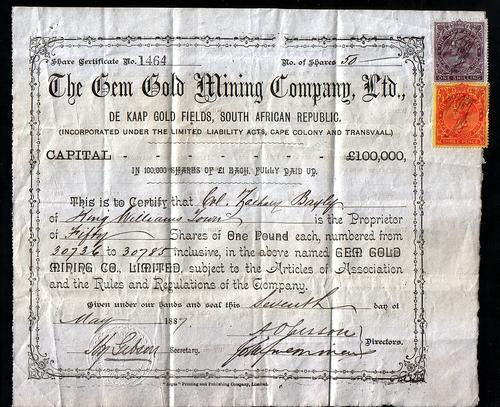 Share Certificate No. 1464 No. of Shares 50
ONE SHILLING
The Gem Gold Mining Company, Ltd.,
DE KAAP GOLD FIELDS, SOUTH AFRICAN REPUBLIC.
(INCORPORATED UNDER THE LIMITED LIABILITY ACTS, CAPE COLONY AND TRANSVAAL)
CAPITAL - - - - - - - £100,000,
IN 100,000 SHARES OF £1 EACH, FULLY PAID UP.
This is to Certify that Col. Zachary Bayly
of King Williams Town is the Proprietor
of Fifty Shares of One Pound each, numbered from
30736 to 30785 inclusive, in the above named GEM GOLD
MINING CO., LIMITED, subject to the Articles of Association
and the Rules and Regulations of the Company.
Given under our hands and seal this Seventh day of
May 1887
Secretary. Directors.
"Argus" Printing and Publishing Company, Limited.